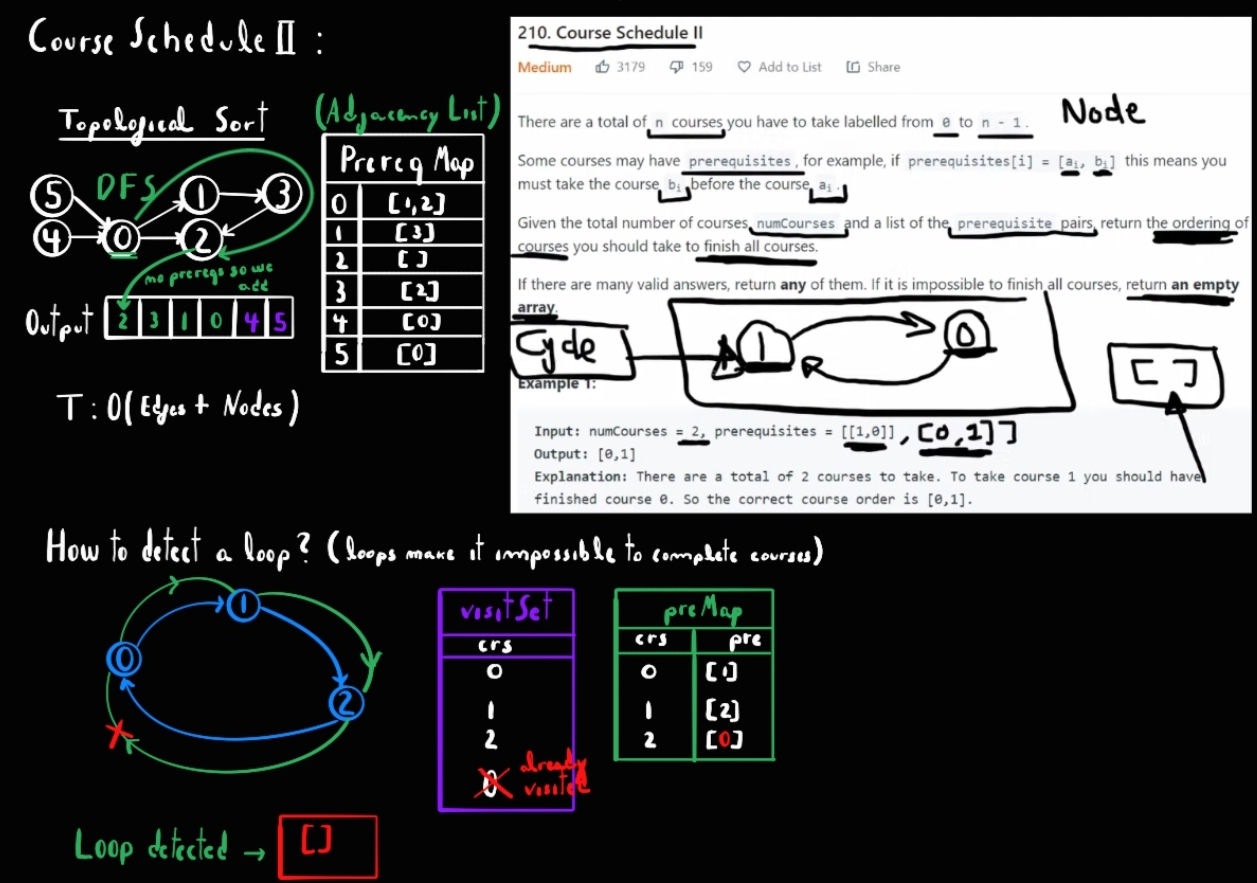 Course Schedule II :
Topological Sort
(Adjacency List)
5
DFS
1
3
4
0
2
no prereqs so we
add
Output
2 3 1 0 4 5
Prereq Map
0 [1,2]
1 [3]
2 [ ]
3 [2]
4 [0]
5 [0]
T : O(Edges + Nodes)
210. Course Schedule II
Medium 3179 159 Add to List Share
Node
There are a total of n courses you have to take labelled from 0 to n - 1.
Some courses may have prerequisites, for example, if prerequisites[i] = [ai, bi] this means you
must take the course bi before the course ai.
Given the total number of courses numCourses and a list of the prerequisite pairs, return the ordering of
courses you should take to finish all courses.
If there are many valid answers, return any of them. If it is impossible to finish all courses, return an empty
array.
Cycle
1
0
[ ]
Example 1:
Input: numCourses = 2, prerequisites = [[1,0]] , [0,1]]
Output: [0,1]
Explanation: There are a total of 2 courses to take. To take course 1 you should have
finished course 0. So the correct course order is [0,1].
How to detect a loop? (loops make it impossible to complete courses)
1
0
2
visitSet
crs
0
1
2
0 already
visited
preMap
crs pre
0 [1]
1 [2]
2 [0]
Loop detected → []